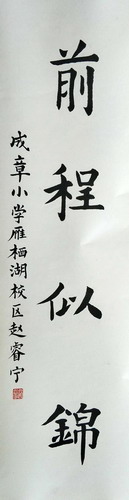 前程似錦
成章小学雁栖湖校区赵睿宁